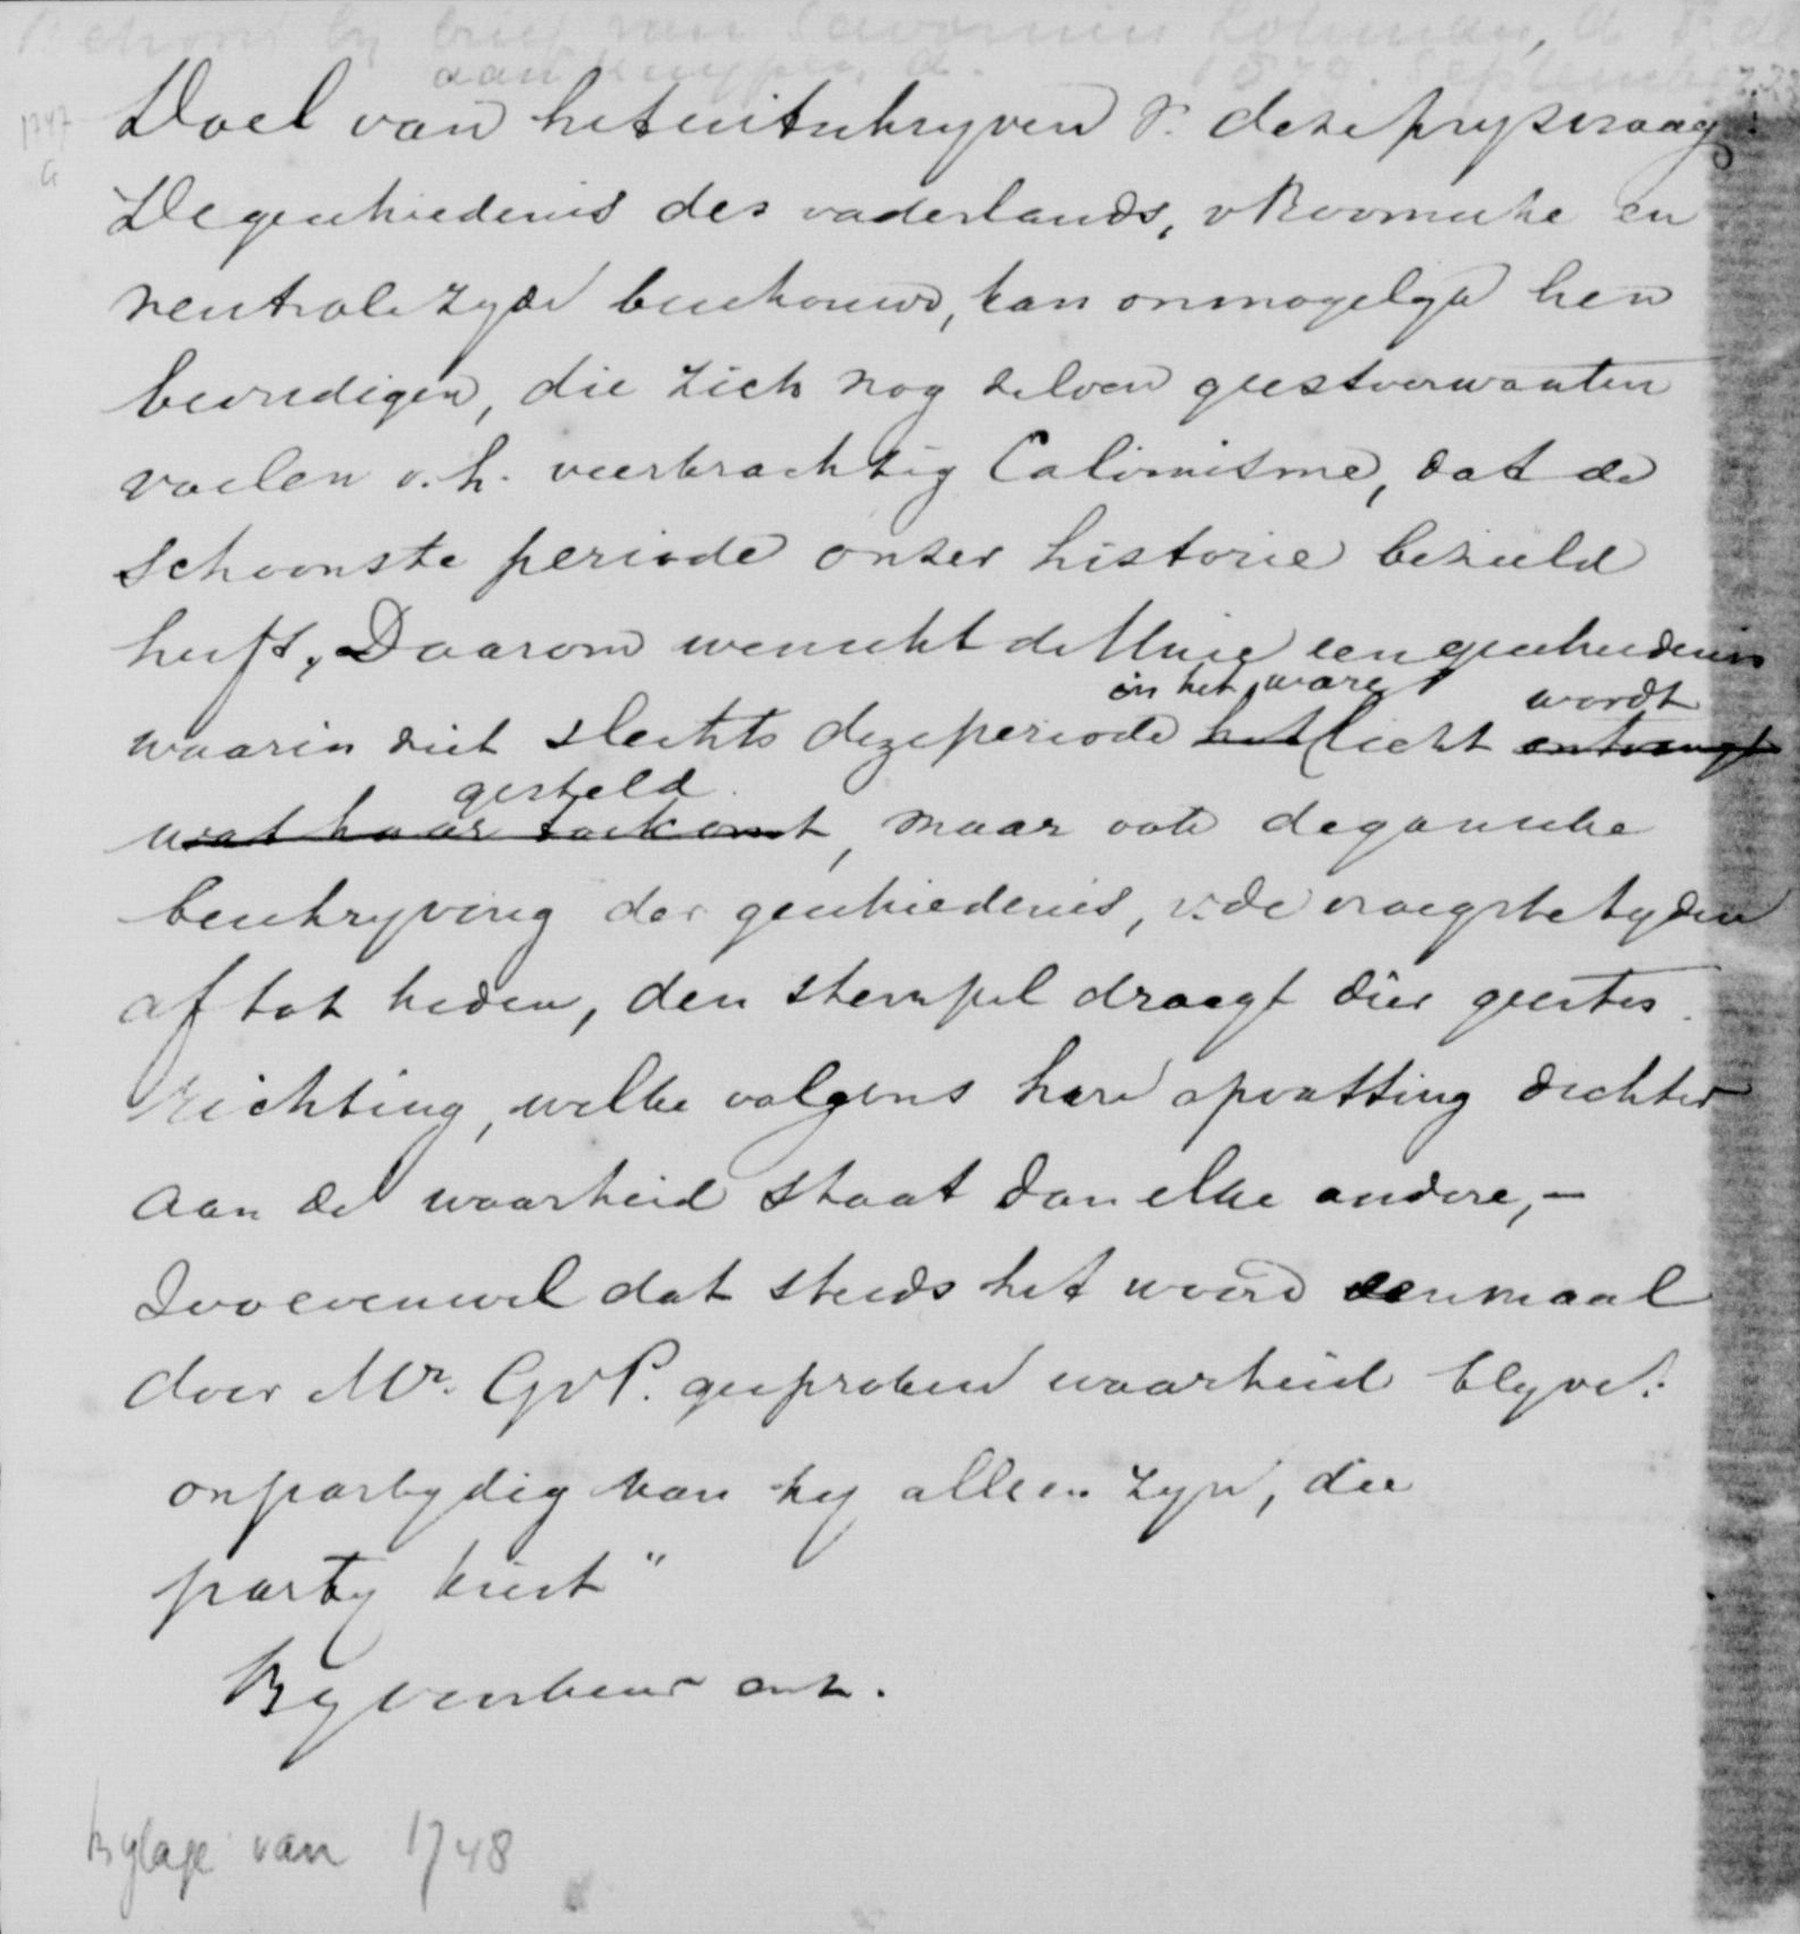 Behoort by brief van Savornin Lohman, A. F. de
aan Kuyper, A. 1879. September 23
1747
a
Doel van het uitschryven v. deze prysvraag:
De geschiedenis des vaderlands, v Roomsche en
neutrale zyde beschouwd, kan onmogelyk hen
bevredigen, die zich nog zelven geestverwanten
voelen v. h. veerkrachtig Calvinisme, dat de
schoonste periode onzer historie bezield
heeft. Daarom wenscht de Unie een geschiedenis
in het ware wordt
waarin niet slechts deze periode het licht ontvangt
gesteld
wat haar toekomt, maar ook de gansche
beschryving der geschiedenis, v. de vroegste tyden
af tot heden, den stempel draagt dier geestes
richting, welke volgens hare opvatting dichter
aan de waarheid staat dan elke andere, –
Zoo evenwel dat steeds het woord eenmaal
door Mr. GvP. gesproken waarheid blyve:
onpartydig kan hy alleen zyn, die
party kiest"
By voorkeur enz.
Bylage van 1748